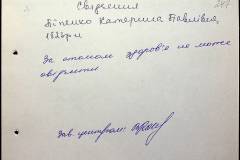 Свідчення
Катерина Павлівна,
1926р.н
За станом здоров'я не може
свідчити
Зав. центром: